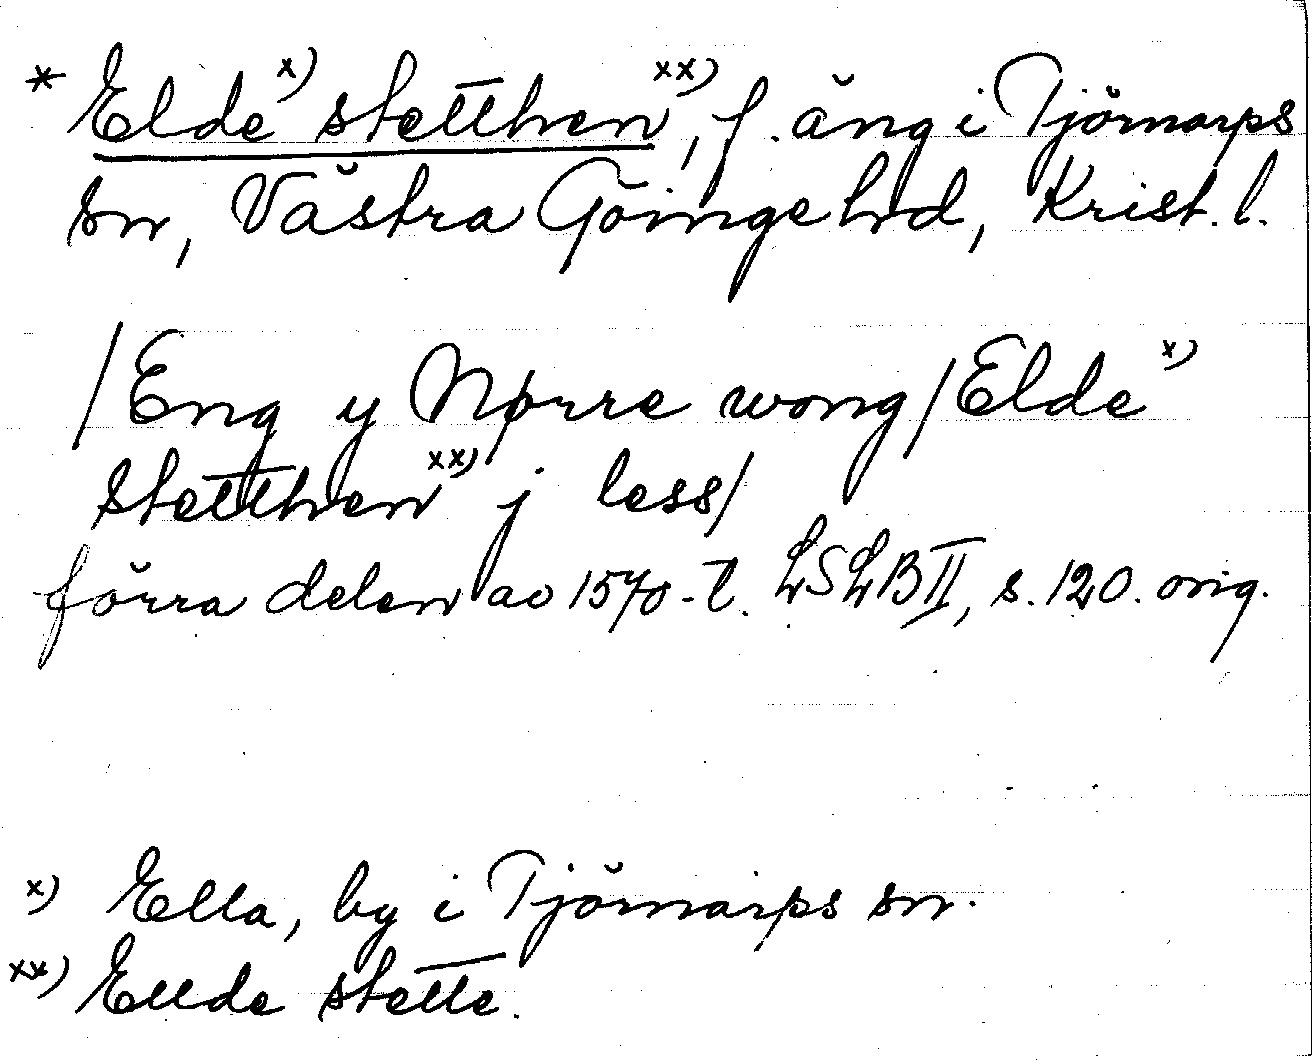 * Elde x) stetthen xx), f. äng i Tjörnarps
sn, Västra Göinge hd, Krist. l.
/Eng y Nørre wong/Elde x)
stetthen xx) j less/
förra delen av 1570-t. LSLB II, s. 120. orig.
x) Ella, by i Tjörnarps sn.
xx) Ellde stette.